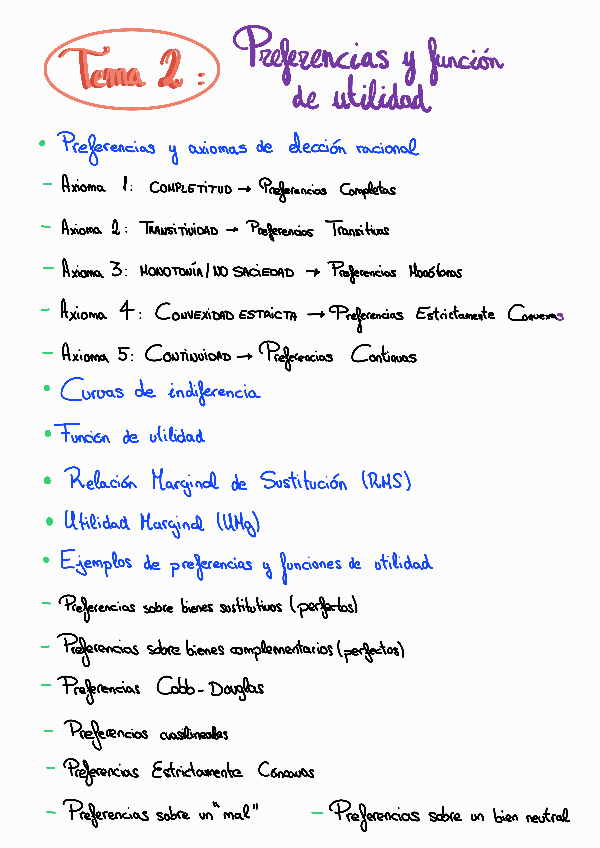 Tema 2: Preferencias y función
de utilidad
• Preferencias y axiomas de elección racional
- Axioma 1: COMPLETITUD → Preferencias Completas
- Axioma 2: TRANSITIVIDAD → Preferencias Transitivas
- Axioma 3: MONOTONÍA/NO SACIEDAD → Preferencias Monótonas
- Axioma 4: CONVEXIDAD ESTRICTA → Preferencias Estrictamente Convexas
- Axioma 5: CONTINUIDAD → Preferencias Continuas
• Curvas de indiferencia
• Función de utilidad
• Relación Marginal de Sustitución (RMS)
• Utilidad Marginal (UMg)
• Ejemplos de preferencias y funciones de utilidad
- Preferencias sobre bienes sustitutivos (perfectos)
- Preferencias sobre bienes complementarios (perfectos)
- Preferencias Cobb-Douglas
- Preferencias cuasilineales
- Preferencias Estrictamente Cóncavas
- Preferencias sobre un "mal" - Preferencias sobre un bien neutral